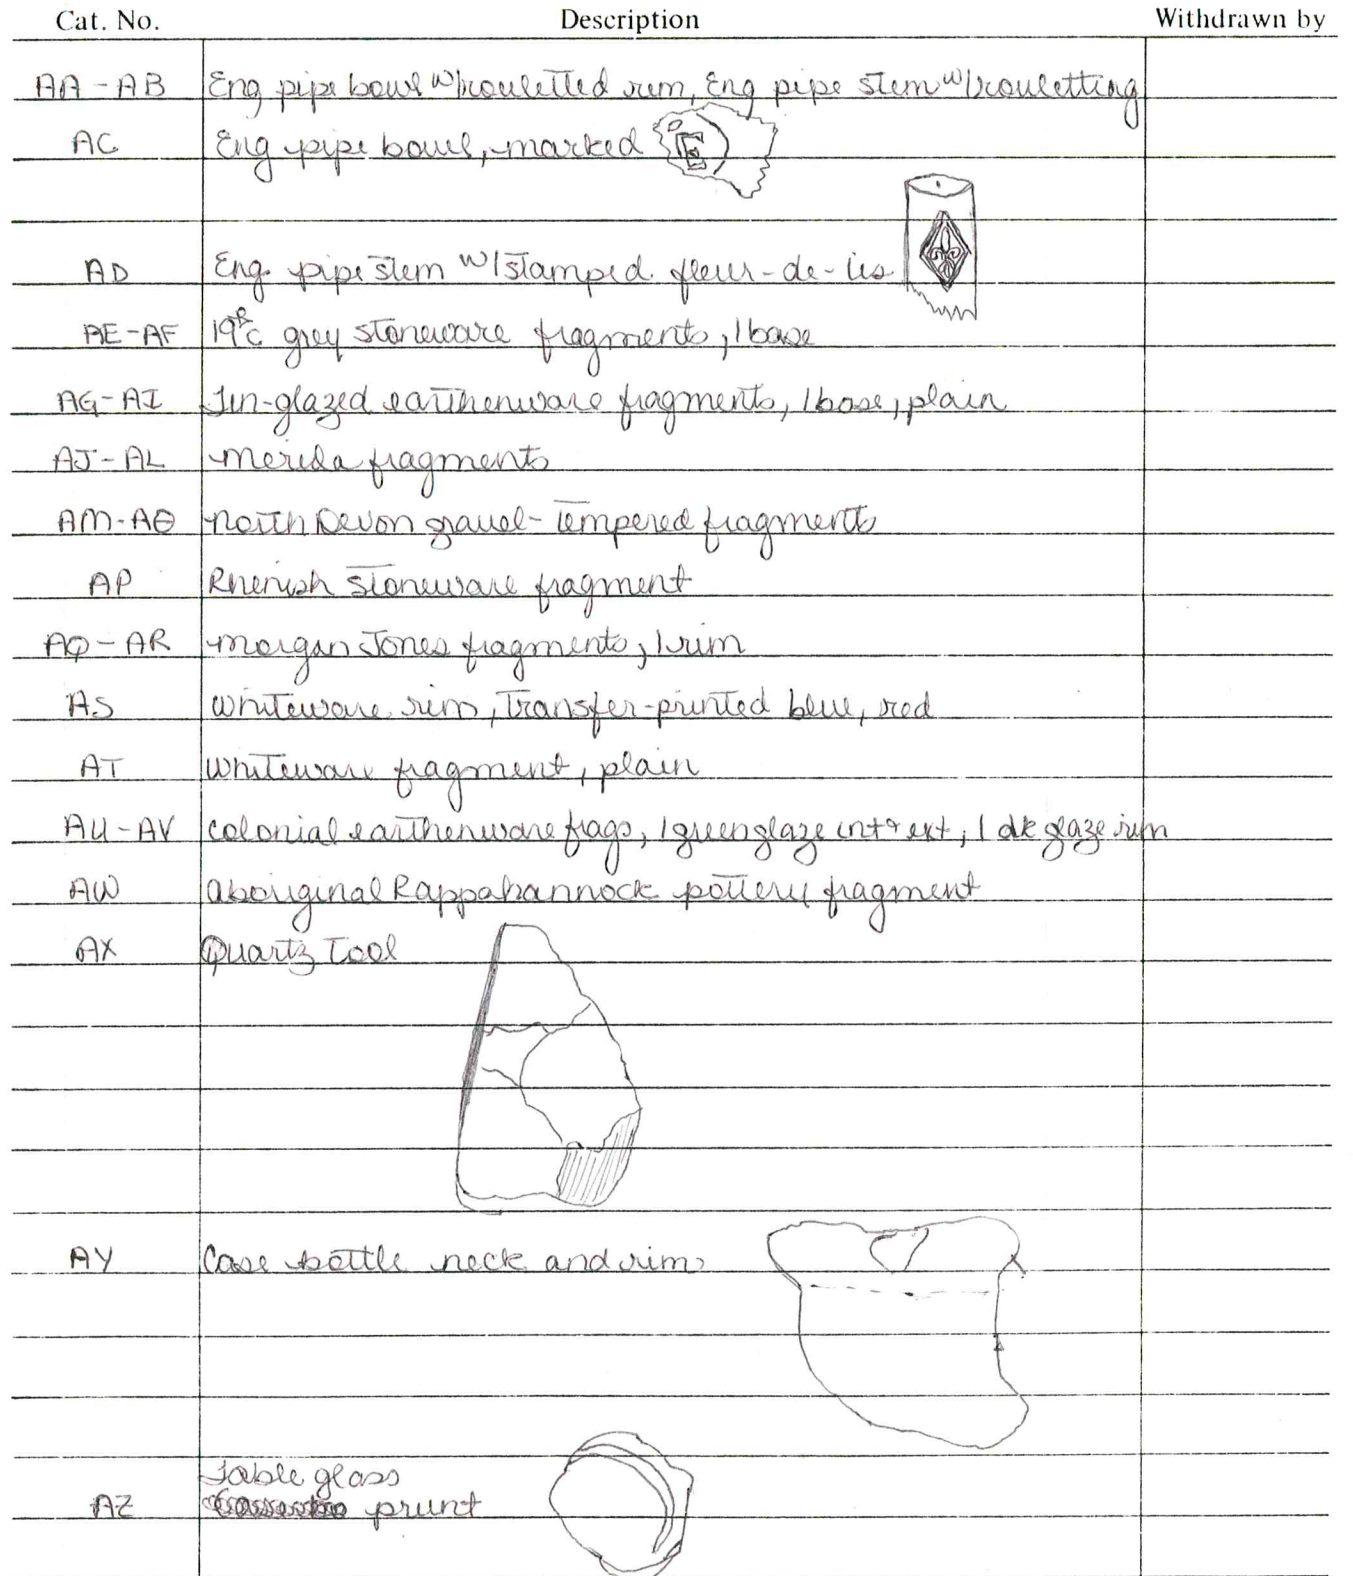 Cat. No. Description Withdrawn by
AA - AB Eng pipe bowl w/rouletted rim, Eng pipe stem w/rouletting
AC Eng pipe bowl, marked
AD Eng. pipe stem w/stamped fleur-de-lis
AE-AF 19th c grey stoneware fragments, 1 base
AG-AI Tin-glazed earthenware fragments, 1 base, plain
AJ-AL merida fragments
AM-AO north Devon gravel-tempered fragments
AP Rhenish stoneware fragment
AQ-AR morgan Jones fragments, 1 rim
AS whiteware rim, transfer-printed blue, red
AT whiteware fragment, plain
AU-AV colonial earthenware frags, 1 green glaze int + ext, 1 dk glaze rim
AW aboriginal Rappahannock pottery fragment
AX Quartz tool
AY Case bottle neck and rim
Table glass
AZ prunt